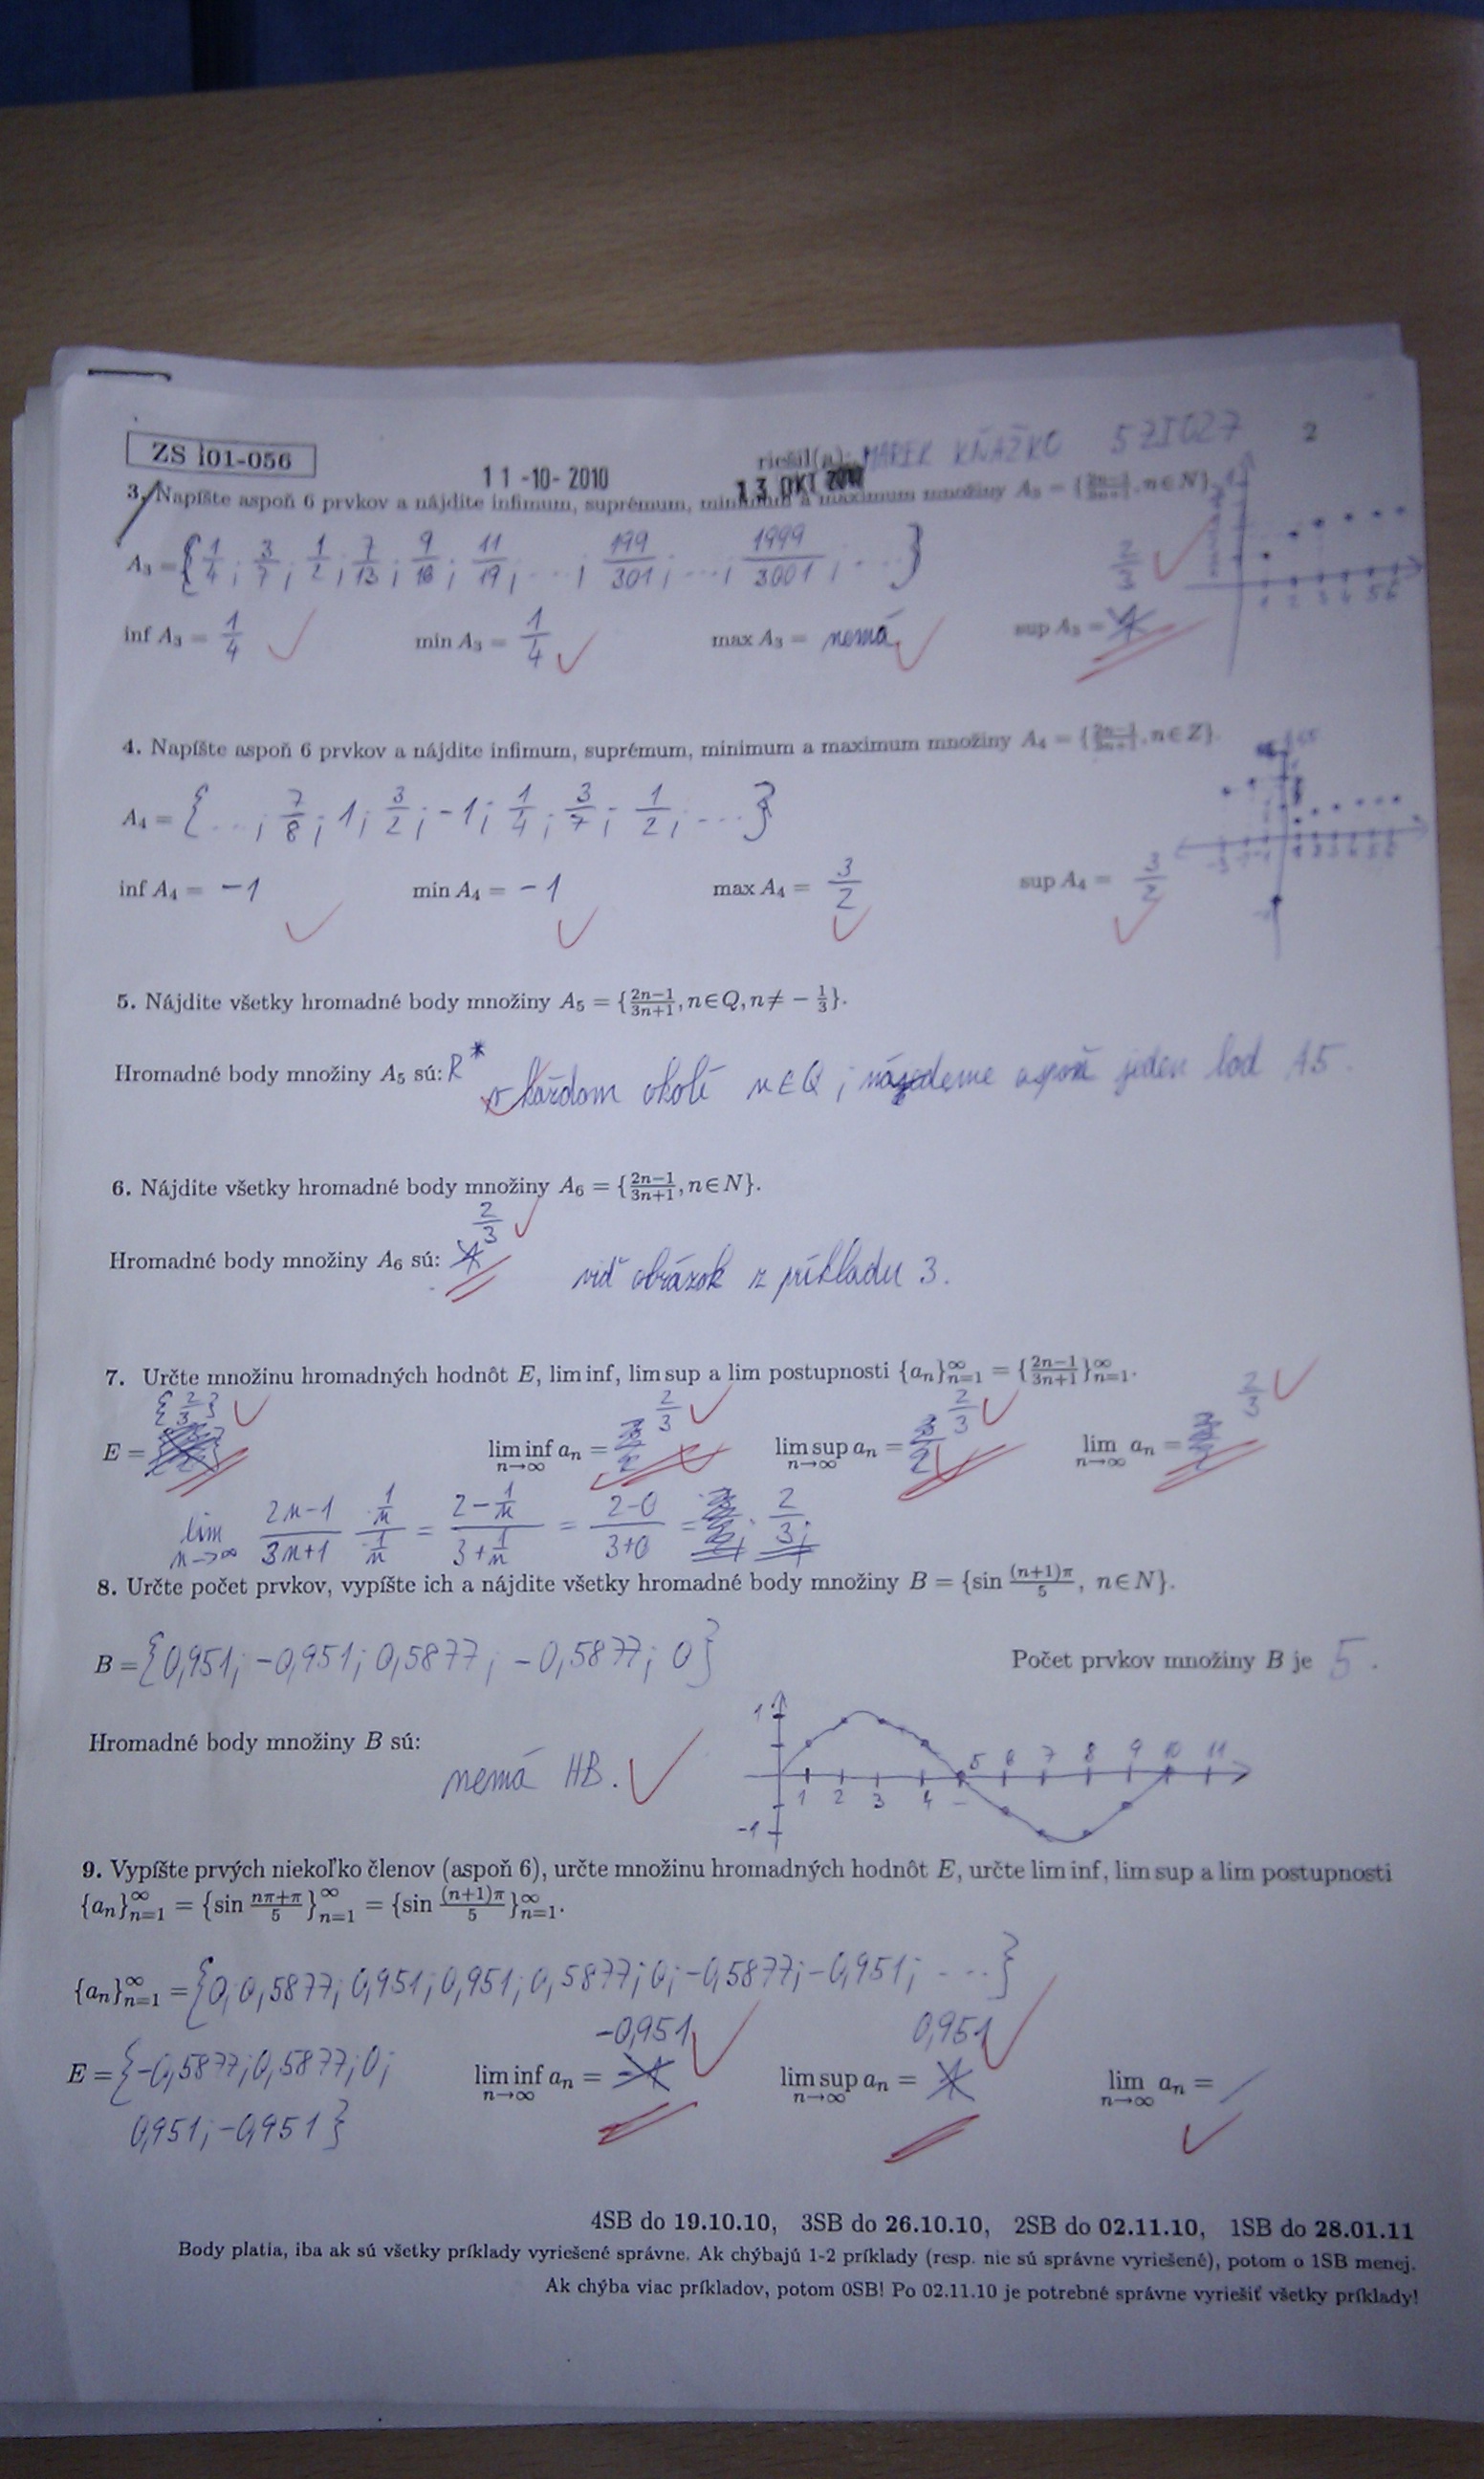 ZS 101-056
11 -10- 2010
riešil(a): MAREK KŇAŽKO 5ZI027 2
13 OKT 2010
3. Napíšte aspoň 6 prvkov a nájdite infimum, suprémum, minimum a maximum množiny A₃ = {(2n−1)/(3n+1), n∈N}.
A₃ = {1/4; 3/7; 1/2; 7/13; 9/16; 11/19; ...; 199/301; ...; 1999/3001; ...}
2/3
inf A₃ = 1/4 min A₃ = 1/4 max A₃ = nemá sup A₃ =
4. Napíšte aspoň 6 prvkov a nájdite infimum, suprémum, minimum a maximum množiny A₄ = {(2n−1)/(3n+1), n∈Z}.
A₄ = {...; 7/8; 1; 3/2; -1; 1/4; 3/7; 1/2; ...}
inf A₄ = −1 min A₄ = −1 max A₄ = 3/2 sup A₄ = 3/2
5. Nájdite všetky hromadné body množiny A₅ = {(2n−1)/(3n+1), n∈Q, n≠ − 1/3}.
Hromadné body množiny A₅ sú: R* v každom okolí n∈Q; nájdeme aspoň jeden bod A5.
6. Nájdite všetky hromadné body množiny A₆ = {(2n−1)/(3n+1), n∈N}.
2/3
Hromadné body množiny A₆ sú: viď obrázok z príkladu 3.
7. Určte množinu hromadných hodnôt E, lim inf, lim sup a lim postupnosti {aₙ}∞ₙ₌₁ = {(2n−1)/(3n+1)}∞ₙ₌₁.
{2/3} 2/3 2/3 2/3
E = lim inf aₙ = lim sup aₙ = lim aₙ =
n→∞ n→∞ n→∞
lim n→∞ (2n−1)/(3n+1) · (1/n)/(1/n) = (2−1/n)/(3+1/n) = (2−0)/(3+0) = 2/3;
8. Určte počet prvkov, vypíšte ich a nájdite všetky hromadné body množiny B = {sin (n+1)π/5, n∈N}.
B = {0,951; −0,951; 0,5877; −0,5877; 0} Počet prvkov množiny B je 5.
Hromadné body množiny B sú: nemá HB.
1
1 2 3 4 5 6 7 8 9 10 11
-1
9. Vypíšte prvých niekoľko členov (aspoň 6), určte množinu hromadných hodnôt E, určte lim inf, lim sup a lim postupnosti
{aₙ}∞ₙ₌₁ = {sin (nπ+π)/5}∞ₙ₌₁ = {sin (n+1)π/5}∞ₙ₌₁.
{aₙ}∞ₙ₌₁ = {0; 0,5877; 0,951; 0,951; 0,5877; 0; −0,5877; −0,951; ...}
−0,951 0,951
E = {−0,5877; 0,5877; 0; lim inf aₙ = lim sup aₙ = lim aₙ = /
n→∞ n→∞ n→∞
0,951; −0,951}
4SB do 19.10.10, 3SB do 26.10.10, 2SB do 02.11.10, 1SB do 28.01.11
Body platia, iba ak sú všetky príklady vyriešené správne. Ak chýbajú 1-2 príklady (resp. nie sú správne vyriešené), potom o 1SB menej.
Ak chýba viac príkladov, potom 0SB! Po 02.11.10 je potrebné správne vyriešiť všetky príklady!